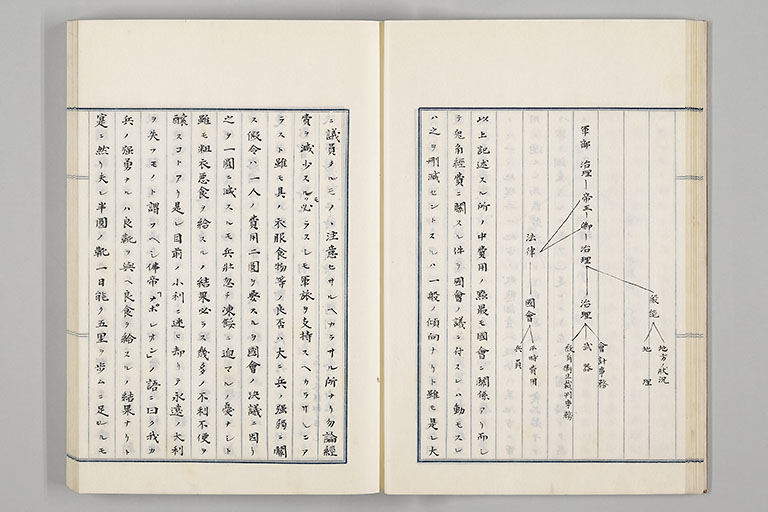 軍部 治理 帝王 卿 治理
般能
地方ノ状況
地理
治理
會計事務
武器
裁判事務
法律 國會
平時費用
兵員
以上記述スル所ノ中費用ノ點最モ國會ニ關係アリ而シ
テ兎角經費ニ關スル件ヲ國會ノ議ニ付スレハ動モスレ
ハ之ヲ刪減セントスルハ一般ノ傾向ナリト雖モ是レ大
ニ議員タルモノヽ注意セサルヘカラサル所ナリ勿論經
費ヲ減少スルモ必ラスシモ軍旅ヲ支持スヘカラサルニア
ラスト雖モ其ノ衣服食物等ノ良否ハ大ニ兵ノ強弱ニ關
ス假令ハ一人ノ費用二圓ヲ要スルヲ國會ノ決議ニ因リ
之ヲ一圓ニ減スルモ兵壯忽チ凍餒ニ迫マルノ憂ナシト
雖モ粗衣悪食ヲ給スルノ結果必ラス幾多ノ不利不便ヲ
醸スコトアリ是レ目前ノ小利ニ迷ヒ却リテ永遠ノ大利
ヲ失フモノト謂フヘシ佛帝「ナポレオン」ノ語ニ曰ク我カ
兵ノ強勇ナルハ良靴ヲ與ヘ良食ヲ給スルノ結果ナリト
寔ニ然リ夫レ半圓ノ靴一日能ク五里ヲ歩ムニ足ヒルモ